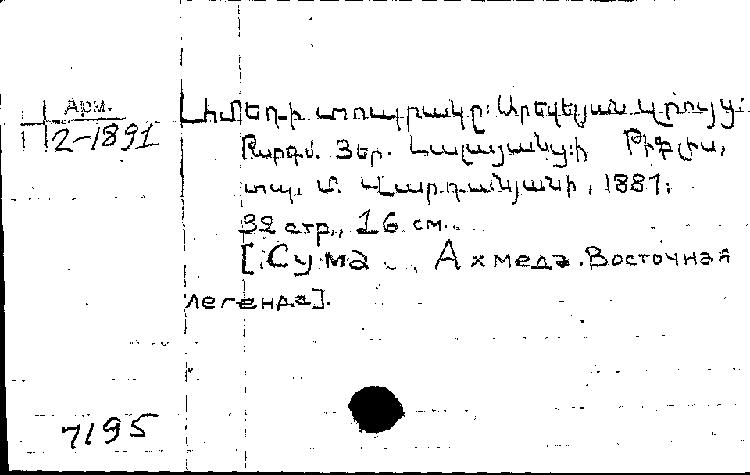 Арм.
2-1891
Ահմեդի տոպրակը: Արեվելյան զրույց:
Թարգմ. Յեր. Լալայանցի Թիֆլիս,
տպ. Մ. Վարդանյանի, 1881:
32 стр., 16 см..
[Сума Ахмеда. Восточная
легенда].
7195